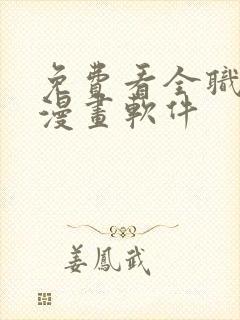 免費看全職
漫畫軟件
姜鳳武